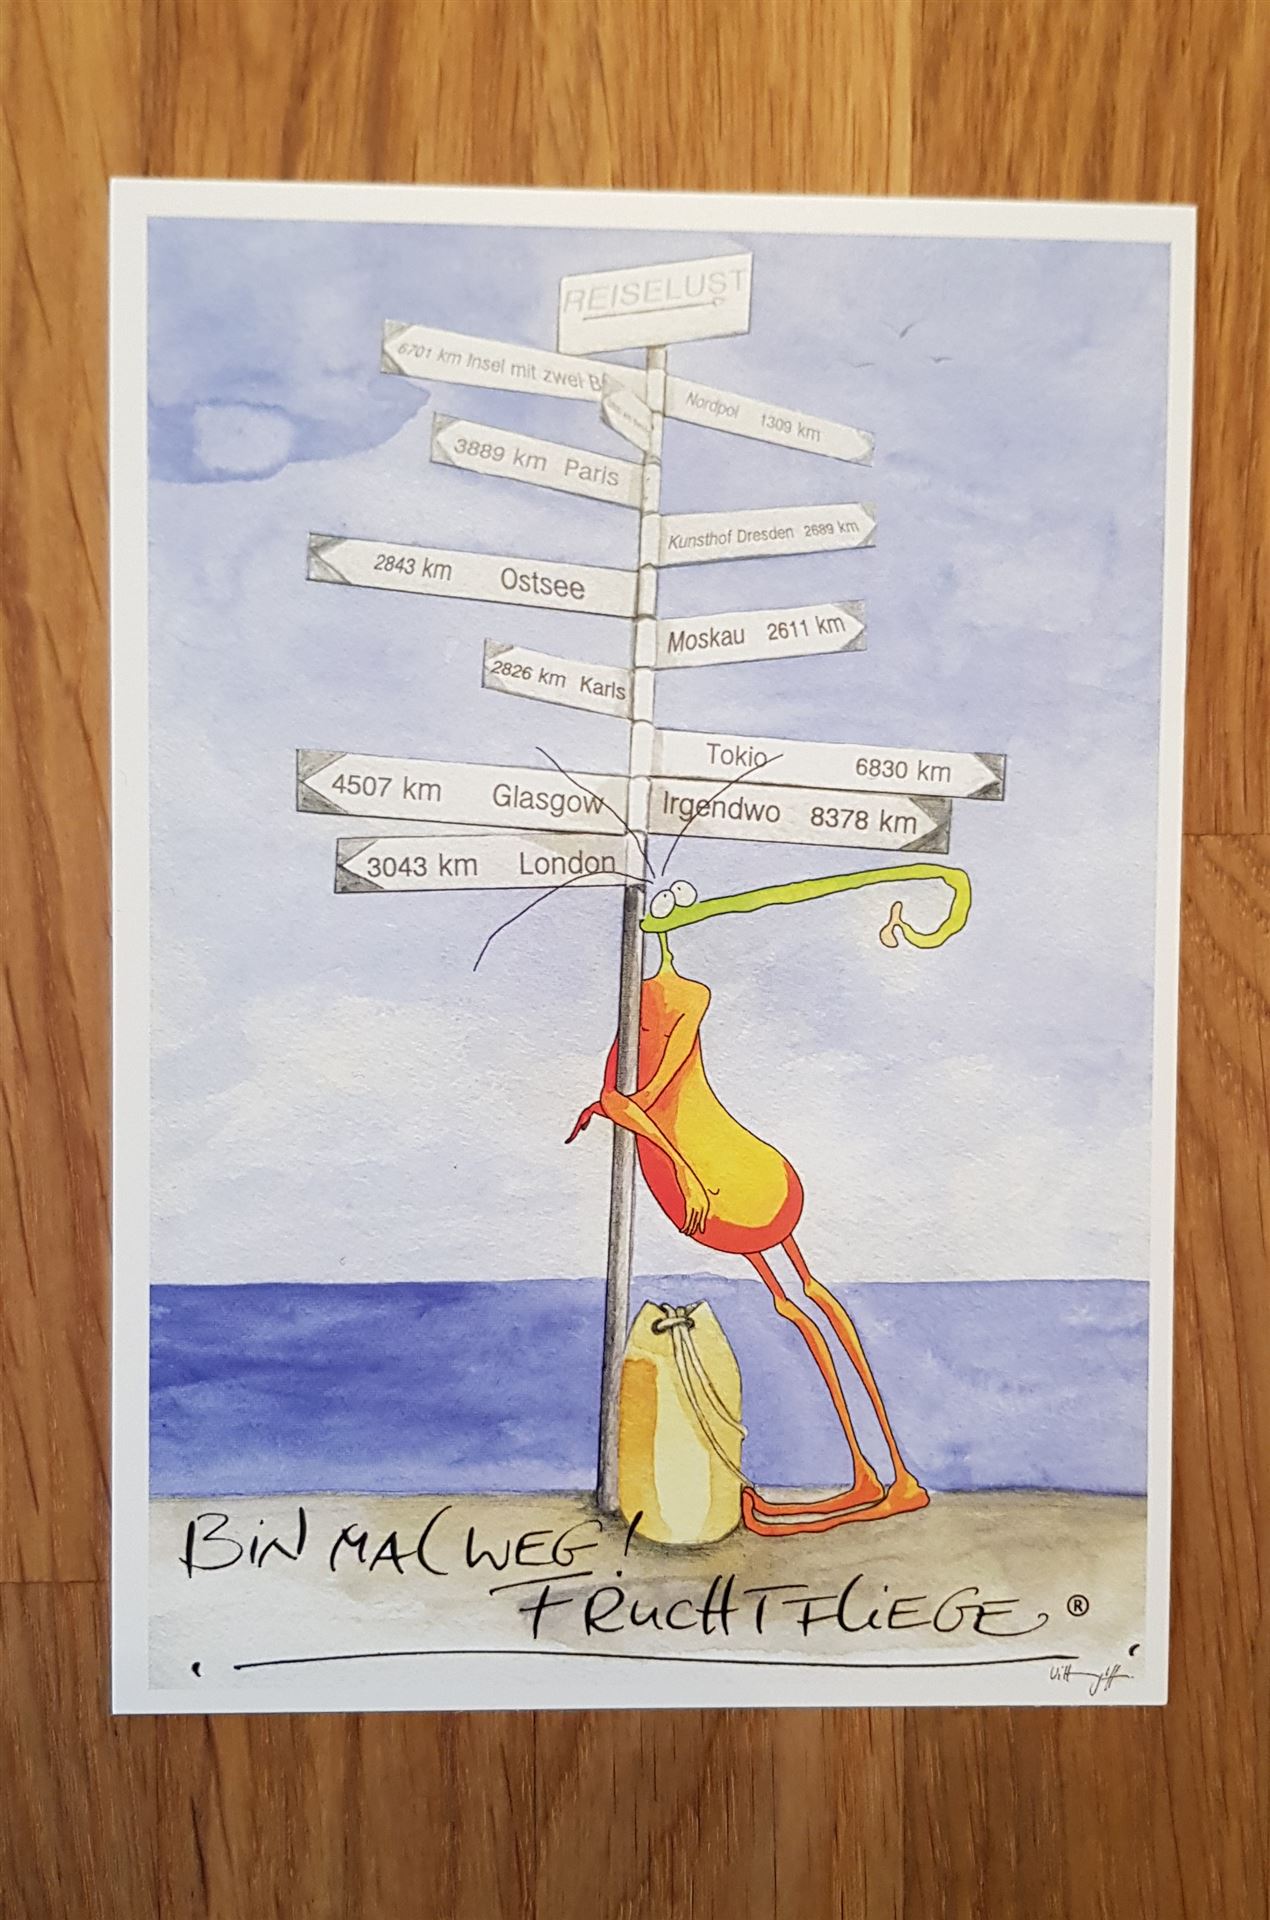 REISELUST
6701 km Insel mit zwei
Nordpol 1309 km
3889 km Paris
Kunsthof Dresden 2689 km
2843 km Ostsee
Moskau 2611 km
2826 km Karls
Tokio 6830 km
4507 km Glasgow
Irgendwo 8378 km
3043 km London
BIN MAL WEG!
FRUCHTFLIEGE ®